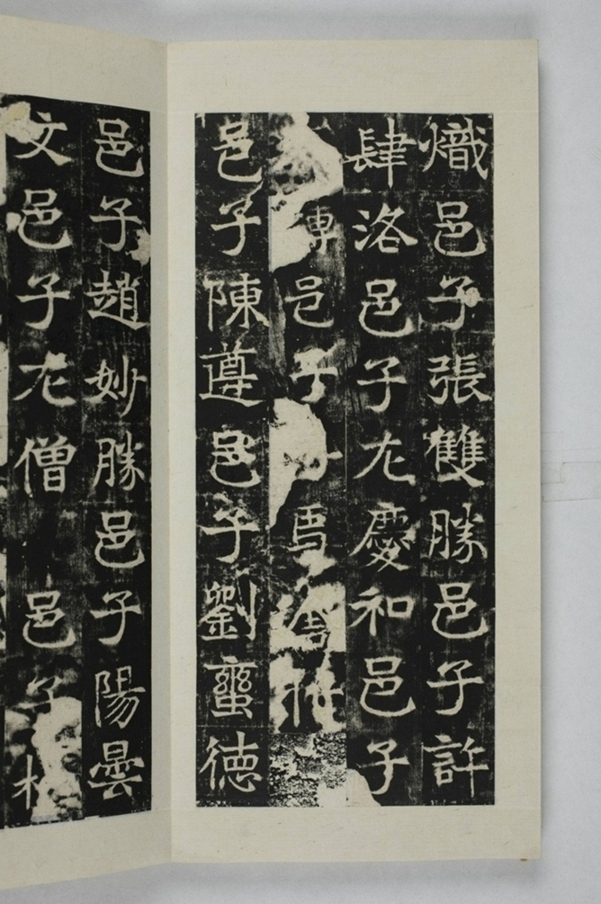 熾邑子張雙勝邑子許
肆洛邑子尢慶和邑子
邑子
邑子陳遵邑子劉蠻德
邑子趙妙勝邑子陽曇
文邑子尢僧邑子